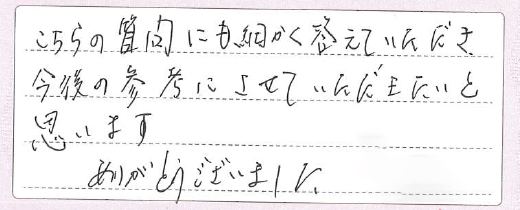 こちらの質問にも細かく答えていただき
今後の参考にさせていただきたいと
思います
ありがとうございました